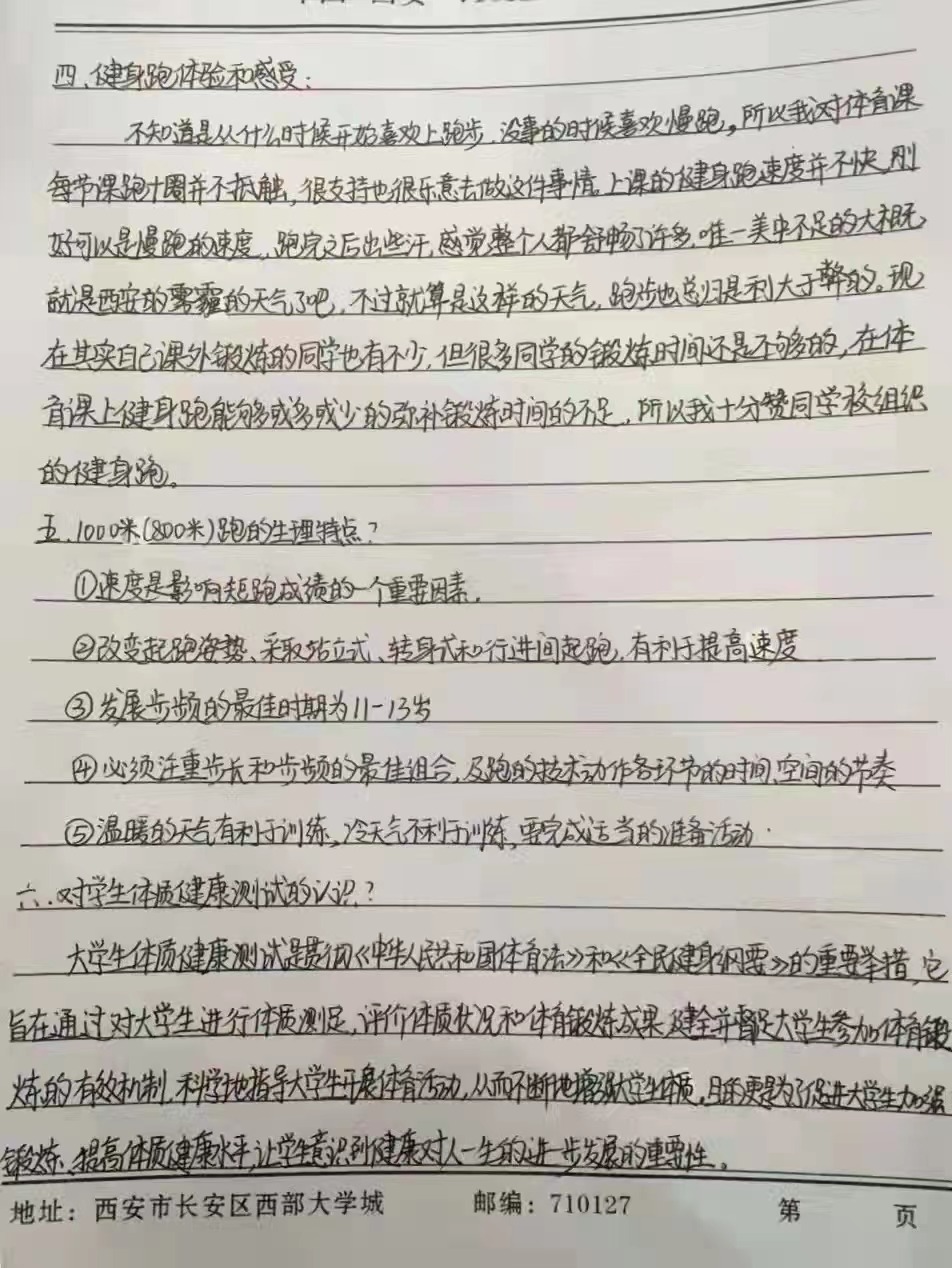 四、健身跑体验和感受：
不知道是从什么时候开始喜欢上跑步，没事的时候喜欢慢跑，所以我对体育课
每节课跑十圈并不抵触，很支持也很乐意去做这件事情。上课的健身跑速度并不快，刚
好可以是慢跑的速度，跑完之后出些汗，感觉整个人都舒畅了许多，唯一美中不足的大概
就是西安的雾霾的天气了吧，不过就算是这样的天气，跑步也总归是利大于弊的。现
在其实自己课外锻炼的同学也有不少，但很多同学的锻炼时间还是不够多的，在体
育课上健身跑能够或多或少的弥补锻炼时间的不足，所以我十分赞同学校组织
的健身跑。
五、1000米(800米)跑的生理特点？
①速度是影响短跑成绩的一个重要因素.
②改变起跑姿势、采取站立式、转身式和行进间起跑，有利于提高速度
③发展步频的最佳时期为11-13岁
④必须注重步长和步频的最佳组合，及跑的技术动作各环节的时间、空间的节奏
⑤温暖的天气有利于训练，冷天气不利于训练，要完成适当的准备活动.
六、对学生体质健康测试的认识？
大学生体质健康测试是贯彻《中华人民共和国体育法》和《全民健身纲要》的重要举措，它
旨在通过对大学生进行体质测定，评价体质状况和体育锻炼成果，建全并督促大学生参加体育锻
炼的有效机制，科学地指导大学生开展体育活动，从而不断地增强大学生体质，目的更是为了促进大学生加强
锻炼、提高体质健康水平，让学生意识到健康对人一生的进一步发展的重要性。
地址：西安市长安区西部大学城 邮编：710127 第 页